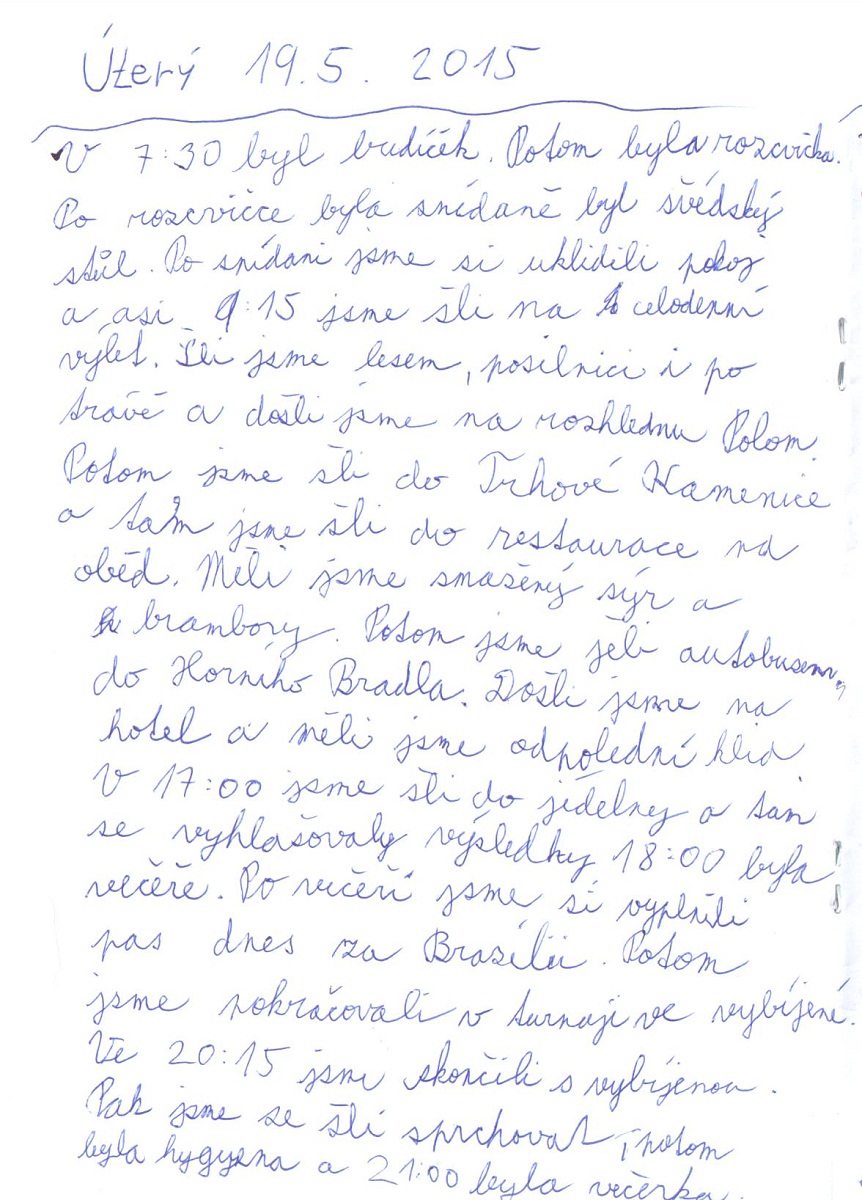 Úterý 19.5. 2015
V 7:30 byl budíček. Potom byla rozcvička.
Po rozcvičce byla snídaně byl švédský
stůl. Po snídani jsme si uklidili pokoj
a asi 9:15 jsme šli na celodenní
výlet. Šli jsme lesem, posilnici i po
trávě a došli jsme na rozhlednu Polom.
Potom jsme šli do Trhové Kamenice
a tam jsme šli do restaurace na
oběd. Měli jsme smažený sýr a
brambory. Potom jsme jeli autobusem
do Horního Bradla. Došli jsme na
hotel a měli jsme odpolední klid
V 17:00 jsme šli do jídelny a tam
se vyhlašovaly výsledky 18:00 byla
večeře. Po večeři jsme si vyplnili
pas dnes za Brazílii. Potom
jsme pokračovali v turnaji ve vybíjené.
Ve 20:15 jsme skončili s vybíjenou.
Pak jsme se šli sprchovat, potom
byla hygyena a 21:00 byla večerka.